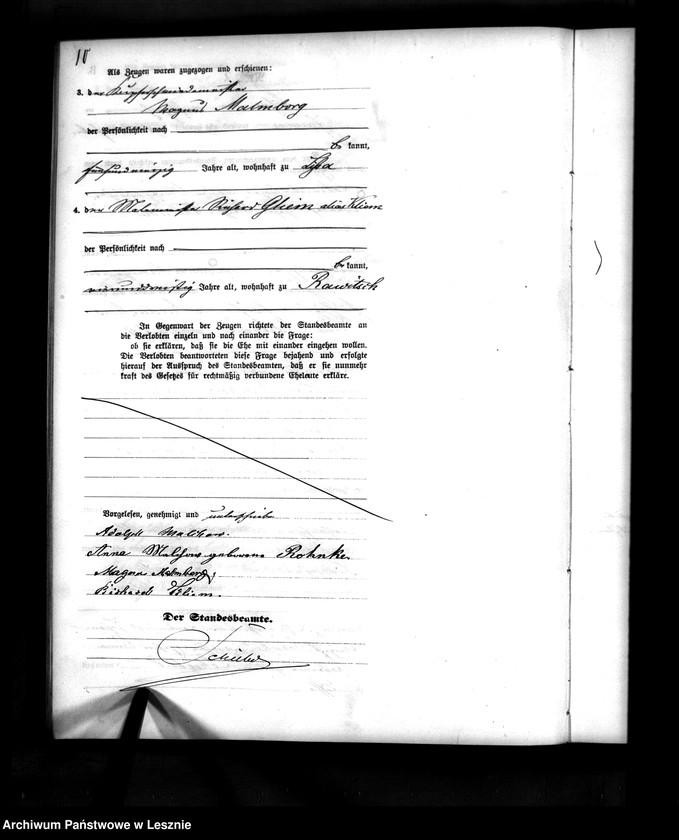 10
Als Zeugen waren zugezogen und erschienen:
3. der Kupferschmiedemeister
Magnus Malmborg
der Persönlichkeit nach
be kannt,
fünfundvierzig Jahre alt, wohnhaft zu Lissa
4. der Malermeister Richard Gliem alias Kliem
der Persönlichkeit nach
be kannt,
vierunddreißig Jahre alt, wohnhaft zu Rawitsch
In Gegenwart der Zeugen richtete der Standesbeamte an
die Verlobten einzeln und nach einander die Frage:
ob sie erklären, daß sie die Ehe mit einander eingehen wollen.
Die Verlobten beantworteten diese Frage bejahend und erfolgte
hierauf der Ausspruch des Standesbeamten, daß er sie nunmehr
kraft des Gesetzes für rechtmäßig verbundene Eheleute erkläre.
Vorgelesen, genehmigt und unterschrieben
Adolph Malchow.
Anna Malchow geborene Rohnke.
Magnus Malmborg
Richard Kliem.
Der Standesbeamte.
Archiwum Państwowe w Lesznie